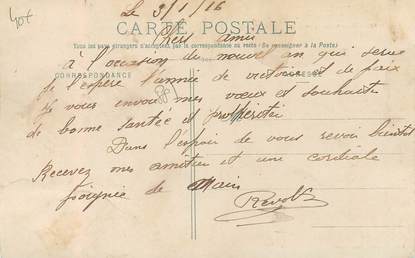 40+
Le 3/1/16
CARTE POSTALE
Chers amis
Tous les pays étrangers n'acceptent pas la correspondance au recto (Se renseigner à la Poste)
à l'occasion du nouvel an qui sera
CORRESPONDANCE
je l'espère l'année de victoire et de paix
Je vous envoie mes vœux et souhaits
de bonne santée et prospéritéi
Dans l'espoir de vous revoir bientôt
Recevez mes amitiés et une cordiale
poignée de main